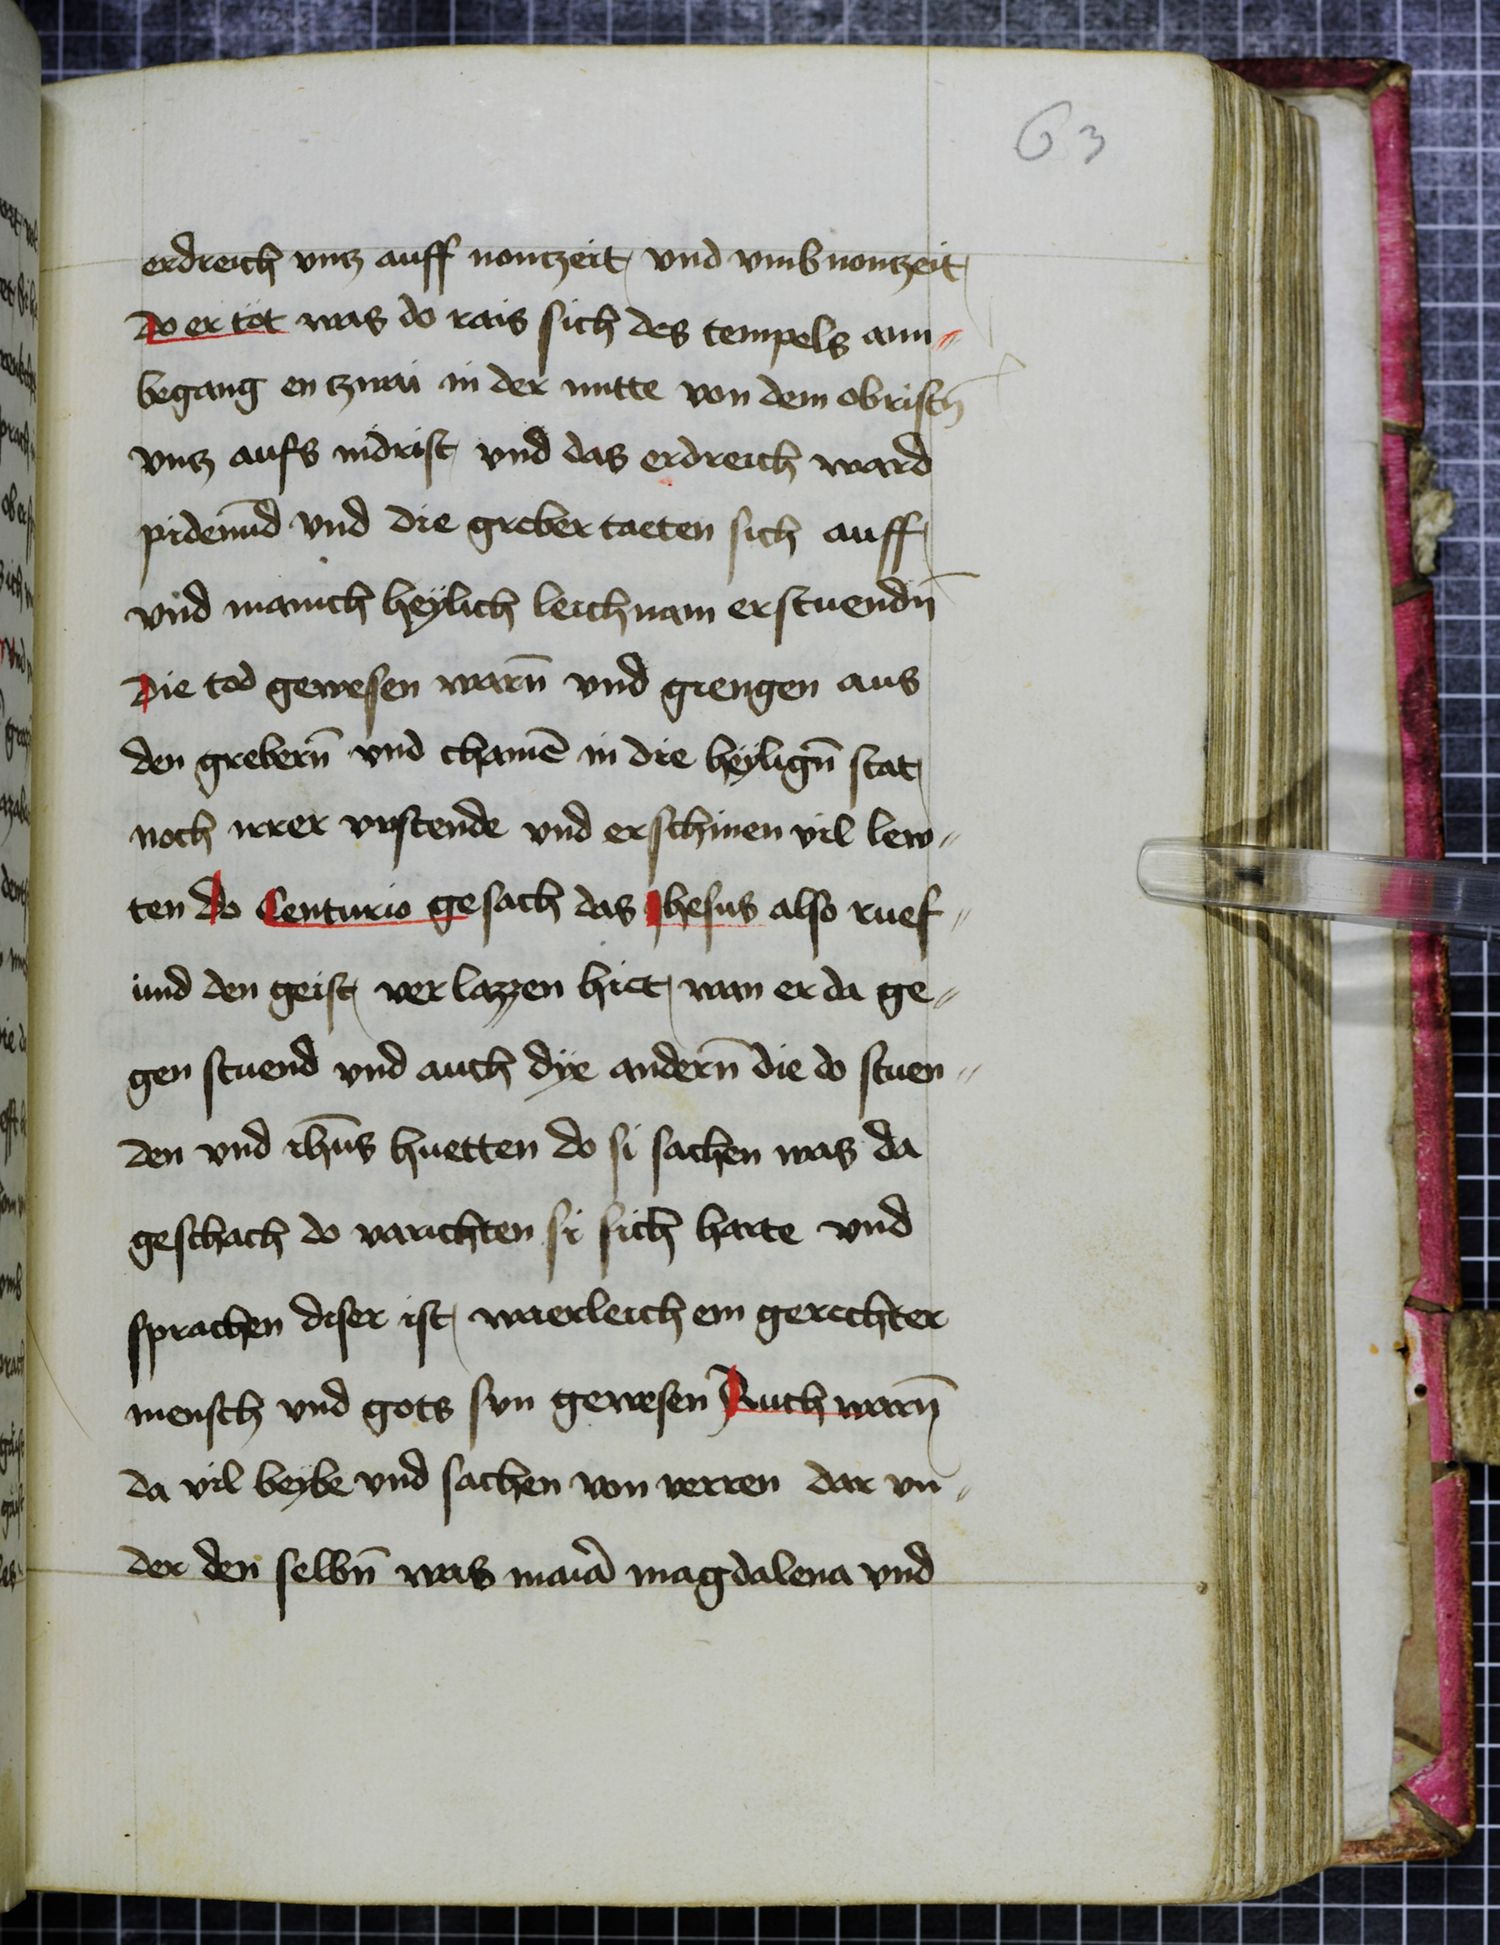 63
erdreich vntz auff nontzeit vnd vmb nontzeit
do er töt was do rais sich des tempels am„
begang en tzwai in der mitte von dem obristn̄
vntz aufs nidrist vnd das erdreich ward
pidemūd vnd die greber taeten sich auff
vnd manich heÿlich leichnam erstuendn̄
Die tod gewesen warn̄ vnd giengen aus
den grebern̄ vnd chamē in die heÿlign̄ stat
noch irrer vrstende vnd erschinen vil lew„
ten do Centurio gesach das Jhesus also ruef„
und den geist verlazzen hiet wan er da ge„
gen stuend vnd auch dÿe andern̄ die do stuen„
den vnd ihūs huetten do si sachen was da
geschach do varichten si sich harte vnd
sprachen diser ist waerleich ein gerechter
mensch vnd gots sun gewesen Auch warn̄
da vil beÿbe vnd sachen von verren dar vn„
der den selbn̄ was maiā magdalena vnd